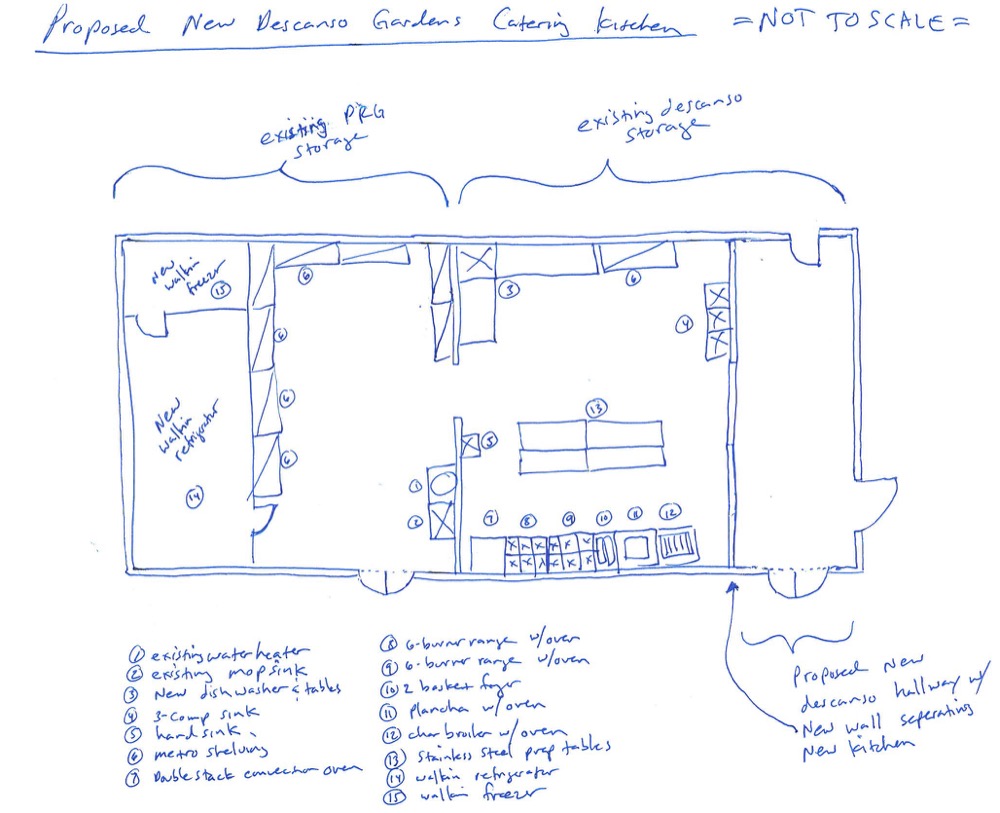 Proposed New Descanso Gardens Catering Kitchen
=NOT TO SCALE=
existing PRG
storage
existing descanso
storage
New
walkin
freezer
15
6
3
6
4
6
6
6
New
walkin
refrigerator
14
13
5
1
2
7
8
9
10
11
12
1 existing water heater
2 existing mop sink
3 New dishwasher & tables
4 3-comp sink
5 hand sink
6 metro shelving
7 Double stack convection oven
8 6-burner range w/oven
9 6-burner range w/oven
10 2 basket fryer
11 plancha w/oven
12 char broiler w/oven
13 Stainless Steel prep tables
14 walkin refrigerator
15 walkin freezer
Proposed New
descanso hallway w/
New wall seperating
New kitchen